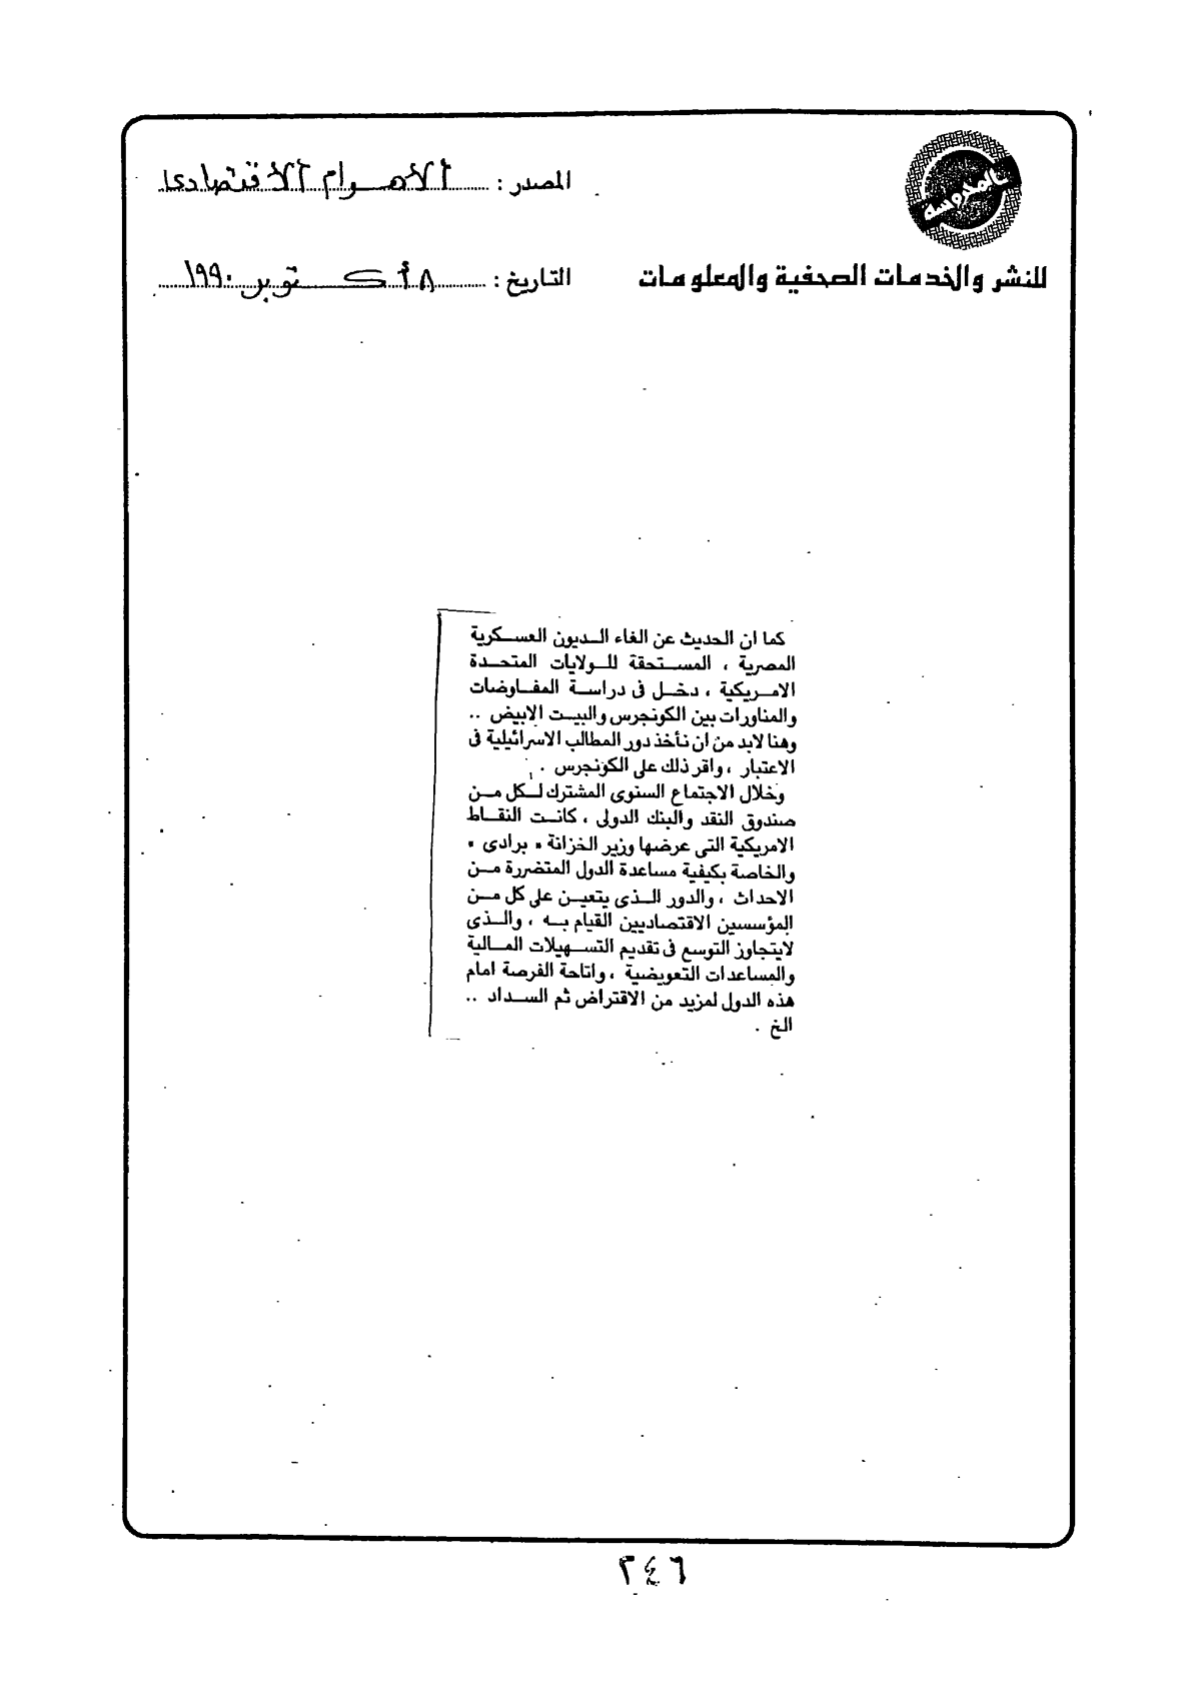 المحروسة
المصدر : الأهرام الاقتصادى
للنشر والخدمات الصحفية والمعلومات
التاريخ : ٨ أكتوبر ١٩٩٠
كما ان الحديث عن الغاء الديون العسكرية
المصرية ، المستحقة للولايات المتحدة
الامريكية ، دخل فى دراسة المفاوضات
والمناورات بين الكونجرس والبيت الابيض ..
وهنا لابد من ان نأخذ دور المطالب الاسرائيلية فى
الاعتبار ، واقر ذلك على الكونجرس .
وخلال الاجتماع السنوى المشترك لكل من
صندوق النقد والبنك الدولى ، كانت النقاط
الامريكية التى عرضها وزير الخزانة " برادى "
والخاصة بكيفية مساعدة الدول المتضررة من
الاحداث ، والدور الذى يتعين على كل من
المؤسسين الاقتصاديين القيام به ، والذى
لايتجاوز التوسع فى تقديم التسهيلات المالية
والمساعدات التعويضية ، واتاحة الفرصة امام
هذه الدول لمزيد من الاقتراض ثم السداد ..
الخ .
٢٤٦